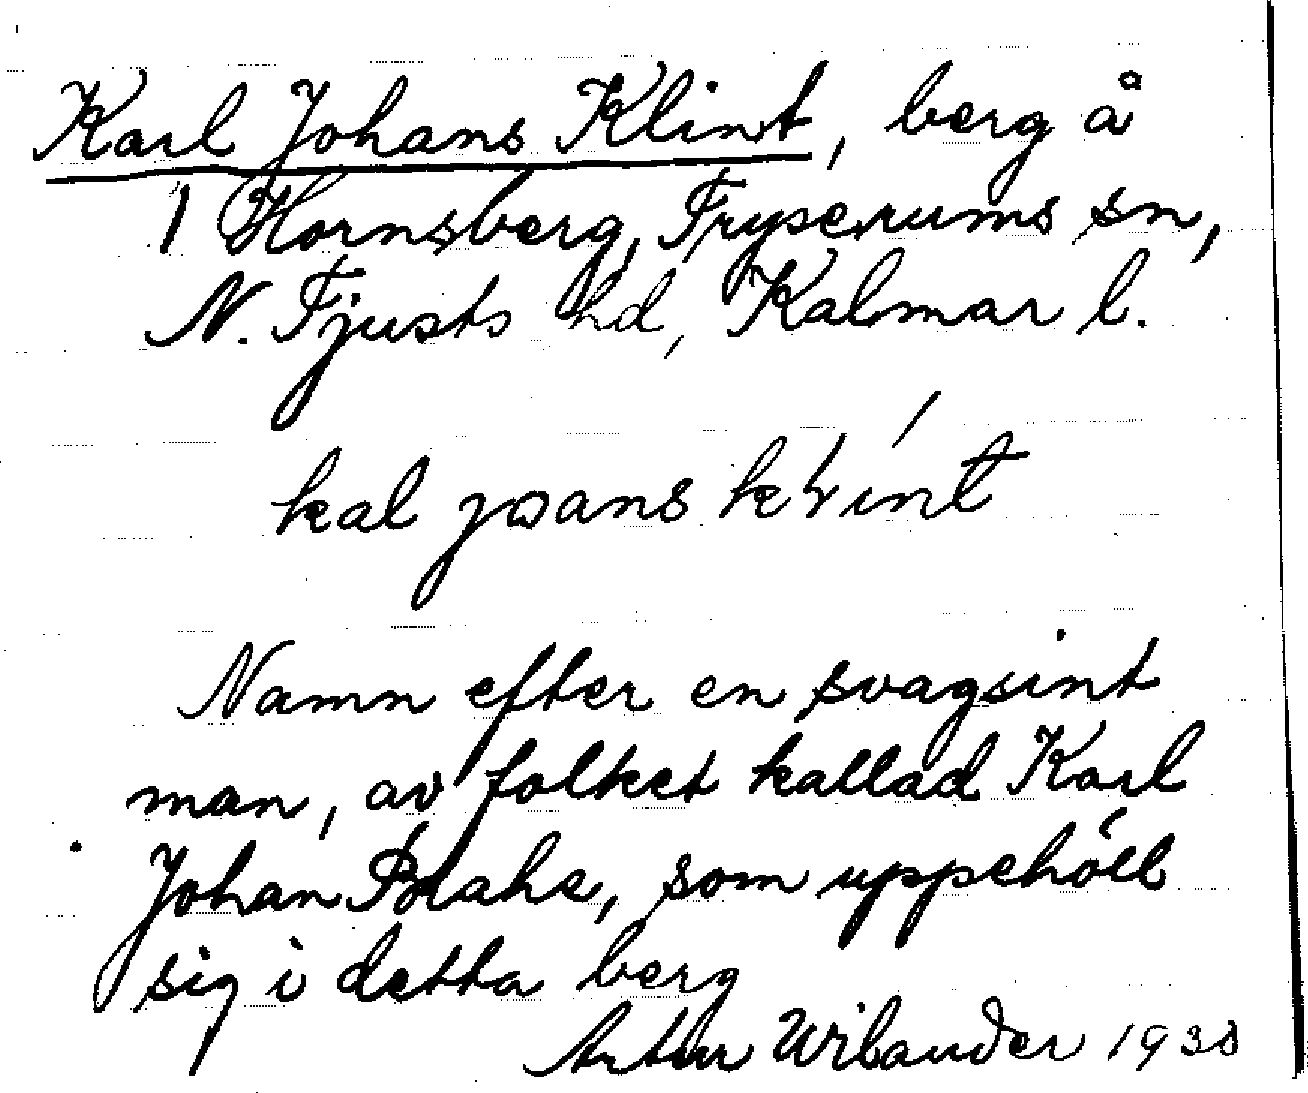 Karl Johans Klint, berg å
1 Hornsberg, Tryserums sn,
N. Tjusts hd, Kalmar l.
kal joans
Namn efter en svagsint
man, av folket kallad Karl
Johan Blahe, som uppehöll
sig i detta berg
Artur Wilander 1938